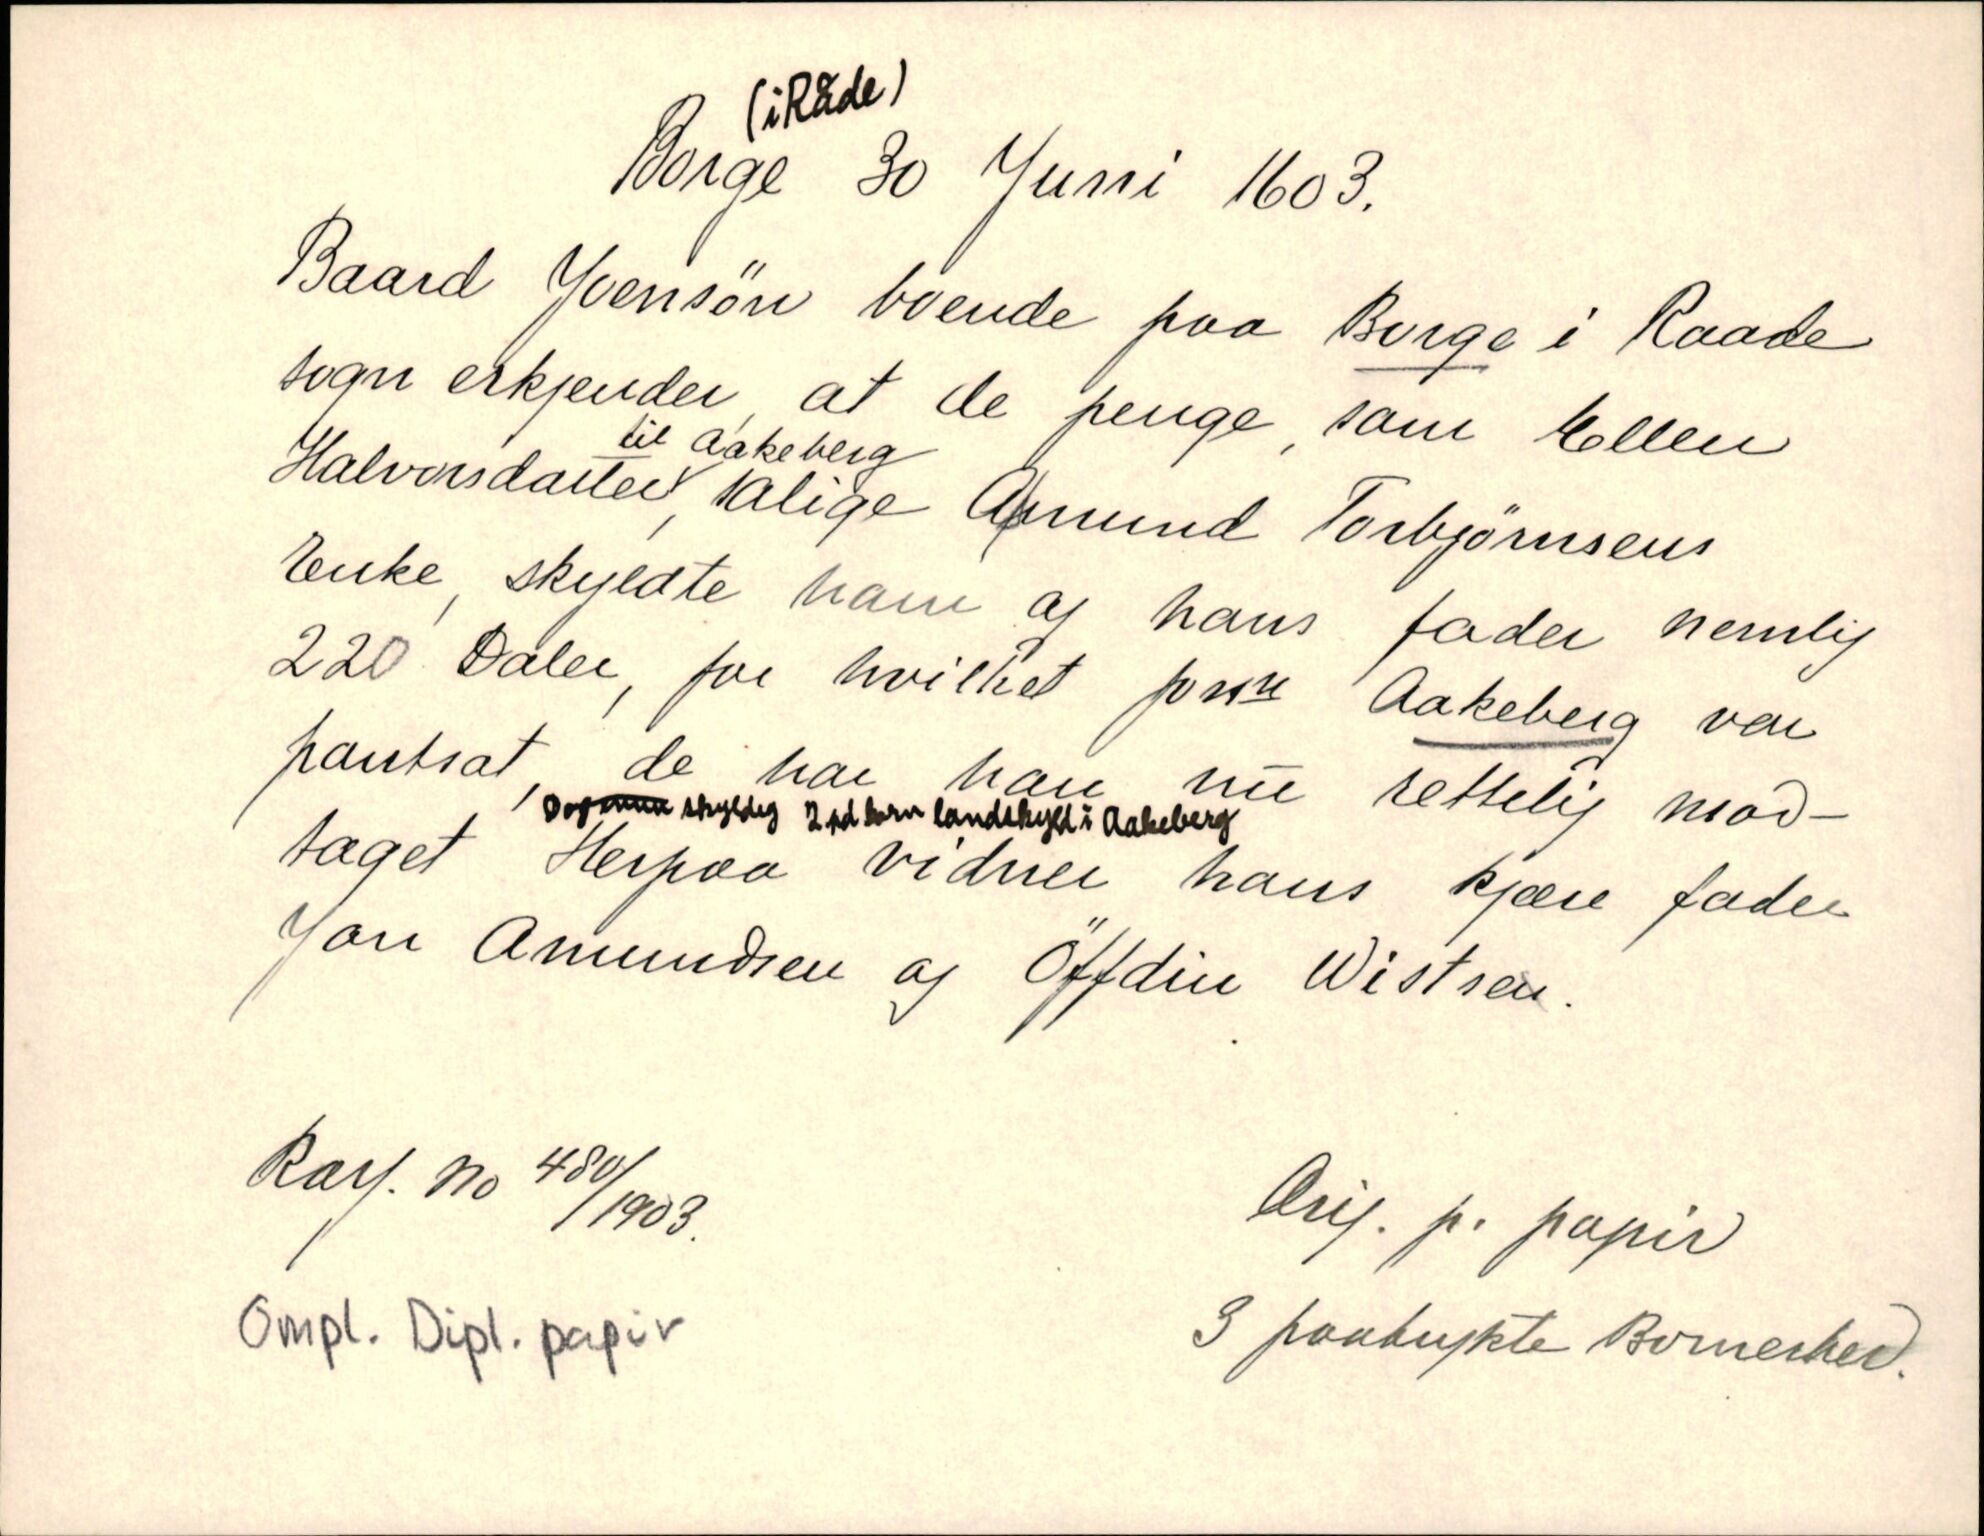 (i Råde)
Borge 30 Juni 1603.
Baard Joensön boende paa Borge i Raade
sogn erkjender, at de penge, som Ellen
til Aakeberg
Halvorsdatter, salige Amund Torbjörnsens
Enke, skyldte ham og hans fader nemlig
220 Daler, for hvilket Aakeberg var
pantsat, de har han nu rettelig mod-
Dog skyldig 2 pd korn landskyld i Aakeberg
taget Herpaa vidner hans kjære fader
Jon Amundsen og Öffdin Wistsen.
Ray. No 480/1903.
Orig. p. papir
Ompl. Dipl. papir
3 paatrykte Bomerker.